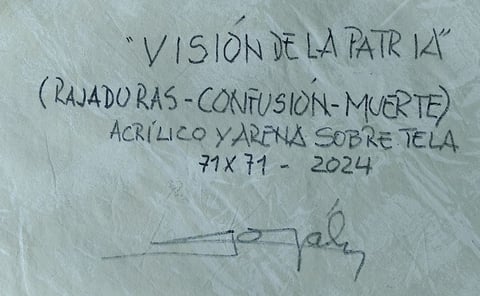 "VISIÓN DE LA PATRIA"
(RAJADURAS-CONFUSIÓN-MUERTE)
ACRÍLICO Y ARENA SOBRE TELA
71X71 - 2024